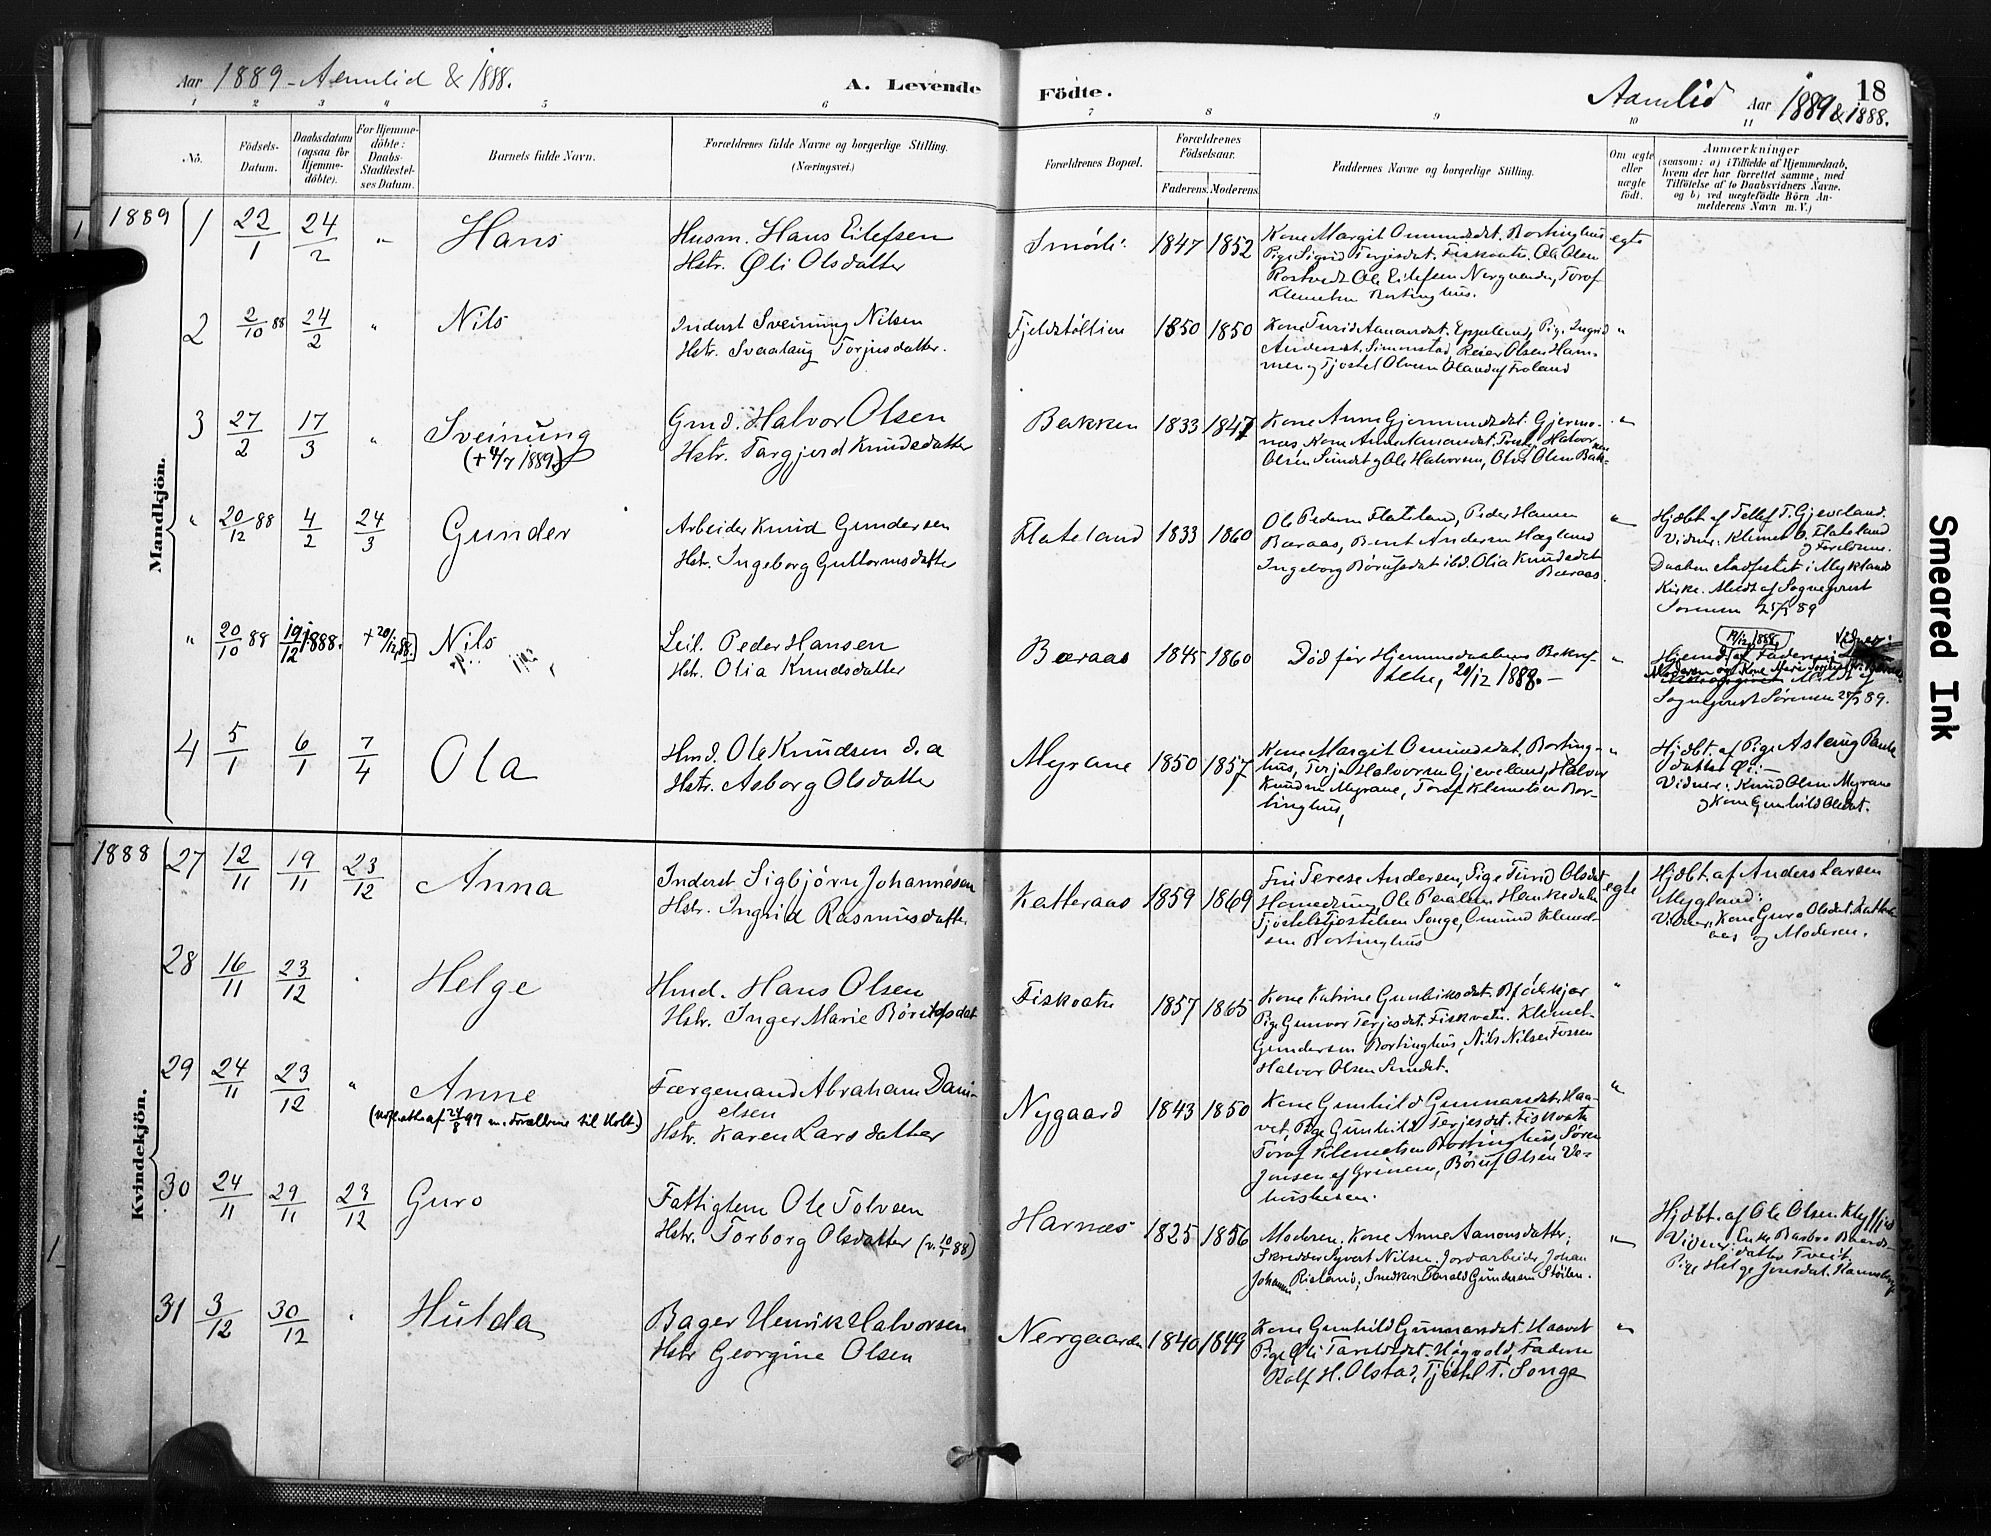 Aar 1889 - Aamlid & 1888.
A. Levende
Födte.
Aamlid Aar 1889 & 1888.
18
1 2 3 4 5 6 7 8 9 10 11
No.
Födsels-
Datum.
Daabsdatum
(ogsaa for
Hjemme-
döbte).
For Hjemme-
döbte:
Daabs-
Stadfæstel-
ses Datum.
Barnets fulde Navn.
Forældrenes fulde Navne og borgerlige Stilling.
(Næringsvei.)
Forældrenes Bopæl.
Forældrenes
Födselsaar.
Faderens. Moderens.
Faddernes Navne og borgerlige Stilling.
Om ægte
eller
uægte
födt.
Anmærkninger
(saasom: a) i Tilfælde af Hjemmedaab,
hvem der har forrettet samme, med
Tilföielse af to Daabsvidners Navne.
og b) ved uægtefödte Börn An-
melderens Navn m. V.)
Mandkjön.
1889 1 22/1 24/2 " Hans
Husm. Hans Eilefsen
Hstr. Øli Olsdatter
Smørli 1847 1852
Kone Margit Omundsdat. Bortinghus
Pige Sigrid Terjesdat. Fiskvatn. Ole Olsen
Rostvedt Ole Eilefsen Nergaarden, Toraf
Klemetsen Bortinghus.
egte
2 2/10 88 24/2 " Nils
Inderst Sveinung Nilsen
Hstr. Svaalaug Torjusdatter.
Fjeldstøllien 1850 1850
Kone Turid Aanonsdat. Eppeland, Pige Ingrid
Andersdt. Simonstad, Reier Olsen Ham-
men og Tjøstel Olsen Oland af Froland
"
3 27/2 17/3 " Sveinung
(+ 4/7 1889)
Gmd. Halvor Olsen
Hstr. Targjerd Knudsdatter
Bakken 1833 1847
Kone Anne Gjermundsdat. Gjermo-
nes, Kone Anne Aanonsdt. Halvor
Olsen Sundet og Ole Halvorsen, Olav Olsen Bak-
"
" 20/12 88 4/2 24/3 Gunder
Arbeider Knud Gundersen
Hstr. Ingeborg Guttormsdatter
Flateland 1833 1860
Ole Pedersen Flateland, Peder Hansen
Bæraas, Bent Andersen Hægland
Ingeborg Børufsdat ibd. Olia Knudsdat
Bæraas.
"
Hjdbt. af Tellef T. Gjeveland.
Vidner: Klemet O. Flateland
og Forældrene.
Daaben stadfestet i Myklands
Kirke. Meldt af Sogneprest
Sørensen 25/3 89
" 20/10 88 19/12 1888. + 20/12 88. Nils
Leil. Peder Hansen
Hstr. Olia Knudsdatter
Bæraas 1845 1860
Død før Hjemmedaabens Bekref-
telse, 20/12 1888. -
"
19/12 1888. Vidner:
Hjemd. af Faderen
Moderen og Kone Marie
Meldt af
Sogneprest Sørensen 25/3 89.
4 5/1 6/1 7/4 Ola
Hmd. Ole Knudsen d.a
Hstr. Asborg Olsdatter
Myrane 1850 1857
Kone Margit Omundsdat. Borting-
hus, Terje Halvorsen Gjeveland, Halvor
Knudsen Myrane, Toraf Klemetsen Bor-
tinghus,
"
Hjdbt. af Pige Aslaug Pauls
datter Øi: -
Vidner: Knud Olsen Myrane
og Kone Gunhild Olsdat.
Kvindekjön.
1888 27 12/11 19/11 23/12 Anna
Inderst Sigbjørn Johannesen
Hstr. Ingrid Rasmusdatter
Katteraas 1859 1869
Fru Terese Andersen, Pige Turid Olsdat
Hamedrung, Ole Pealsen Hankedalen
Tjøstel Tjøstelsen Songe, Omund Klemet-
sen Bortinghus
egte
Hjdbt. af Anders Larsen
Mygland:
Vidner: Kone Guro Olsdat. Katter-
aas og Moderen.
28 16/11 23/12 " Helge
Hmd. Hans Olsen
Hstr. Inger Marie Børufsdat
Fiskvatn 1857 1865
Kone Katrine Gunleiksdat.
Pige Gunvor Terjesdat. Fiskvatn. Klemet
Gundersen Bortinghus, Nils Nilsen Fossen
Halvor Olsen Sundet.
"
29 24/11 23/12 " Anne
(udfl. att. af 24/8 97 m. Forældrene til Holt.)
Færgemand Abraham Dani-
elsen
Hstr. Karen Larsdatter
Nygaard 1843 1850
Kone Gunhild Gunnarsdat. Haa-
vet, Pige Gunhild Terjesdat. Fiskvatn
Toraf Klemetsen Bortinghus, Søren
Jensen af Grimen, Børuf Olsen Ve-
huskasen.
"
30 24/11 29/11 23/12 Guro
Fattiglem Ole Tolvsen
Hstr. Torborg Olsdatter (v. 10/1 88)
Harnæs 1825 1856
Moderen. Kone Anne Aanonsdatter;
Skrædder Syvert Nilsen. Jordarbeider Johan
Johannes Risland; Snedker Harald Gundersen Støilen.
"
Hjdbt. af Ole Olsen
Vidner: Enke Barbro Baards-
datter Tveit,
Pige Helge Jensdat.
31 3/12 30/12 " Hulda
Bager Henrik Halvorsen
Hstr Georgine Olsen
Nergaarden 1840 1849
Kone Gunhild Gunnarsdat. Haavet
Pige Øli Taraldsdat. Høgvold, Faderen
Ralf H. Olstad, Tjøstel T. Songe
"
Smeared Ink